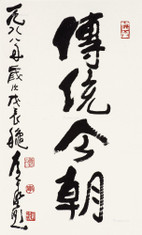 傳統今朝
一九八八年歲次戊辰